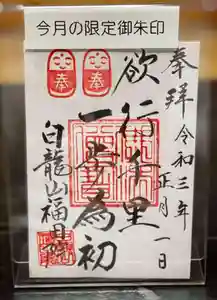 今月の限定御朱印
奉拝
令和三年
正月一日
欲行千里
一歩為初
奉
奉
白龍山福昌院